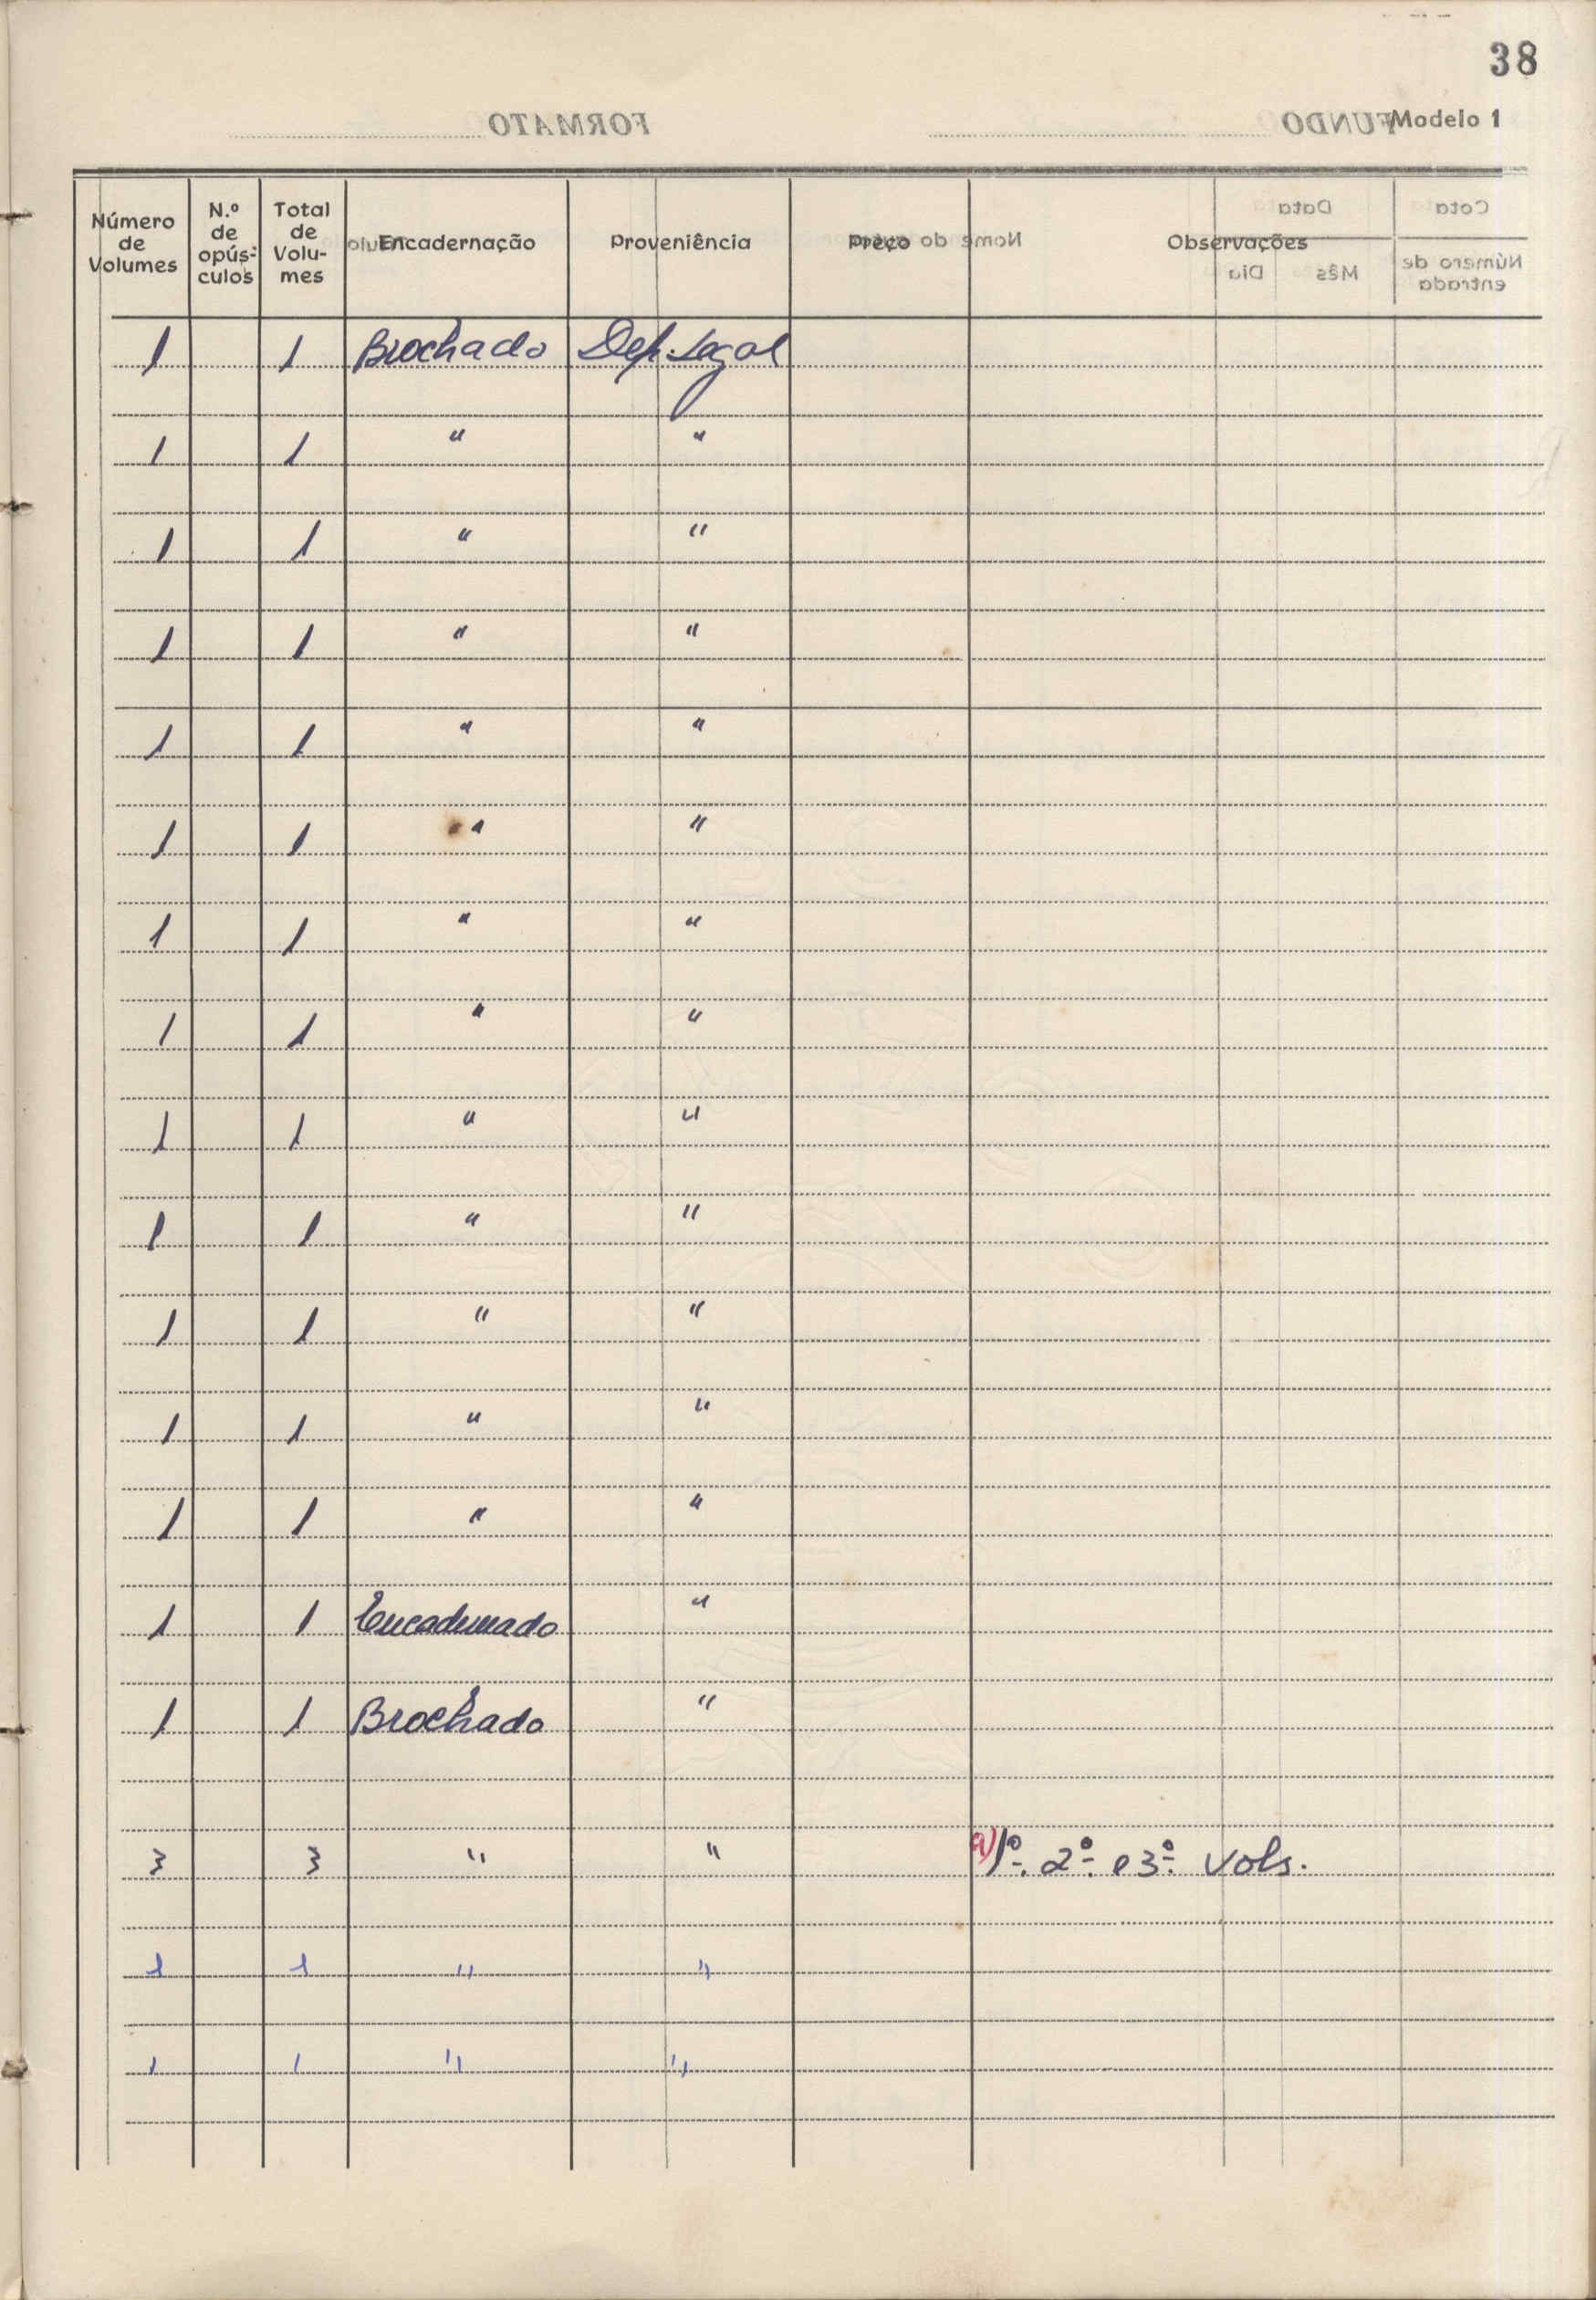 38
Modelo 1
Número de Volumes | N.º de opús-culos | Total de Volu-mes | Encadernação | Proveniência | Preço | Observações
1 | | 1 | Brochado | Dep. Legal
1 | | 1 | " | "
1 | | 1 | " | "
1 | | 1 | " | "
1 | | 1 | " | "
1 | | 1 | " | "
1 | | 1 | " | "
1 | | 1 | " | "
1 | | 1 | " | "
1 | | 1 | " | "
1 | | 1 | " | "
1 | | 1 | " | "
1 | | 1 | " | "
1 | | 1 | Encadernado | "
1 | | 1 | Brochado | "
3 | | 3 | " | " | | a) 1º. 2º. e 3º. Vols.
1 | | 1 | " | "
1 | | 1 | " | "